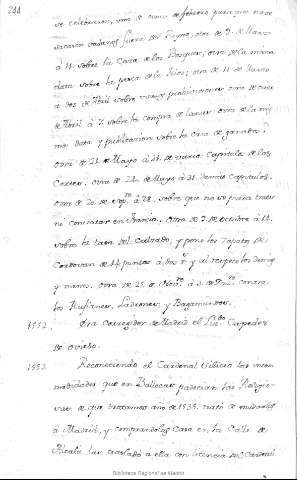 244
se celebraron, uno de cinco de febrero para que no se
sacaran cadenas fuera del Reyno, otra de 9. de Marzo
à 11. sobre la Caza de los Bosques; otra de la misma
data sobre la pesca de los Rios; otra de 11. de Marzo
à dos de Abril sobre
de Abril à 7. sobre la compra de lanas; otra de la mis
ma data y publicacion sobre la Casa de ganados;
otra de 21. de Mayo à 28. de varios Capitulos de las
Cortes. otra de 24. de Mayo à 31. demas Capitulos.
otra de 20. de Sep.re à 28. sobre que no se pueda tratar
ni contratar en Francia. Otra de 7. de octubre à 14.
sobre la tasa del Calzado, y pone los Zapatos de
Cordovan de 14 puntos à dos r.s y al respecto los demas
y otra de 25 de Nov.re à 3. de Diz.re contra
los Rufianes, Ladrones, y Bagamundos.
1552. Era Corregidor de Madrid el Liz.do Cespedes
de oviedo.
1553. Reconociendo el Cardenal Siliceo las incom
modidades que en Ballecas padecian las Religio
sas de que tratamos año de 1535. trató de mudarlas
à Madrid, y comprandoles Casa en la Calle de
Alcalá las trasladó à ella con licencia del Cardenal
Biblioteca Regional de Madrid